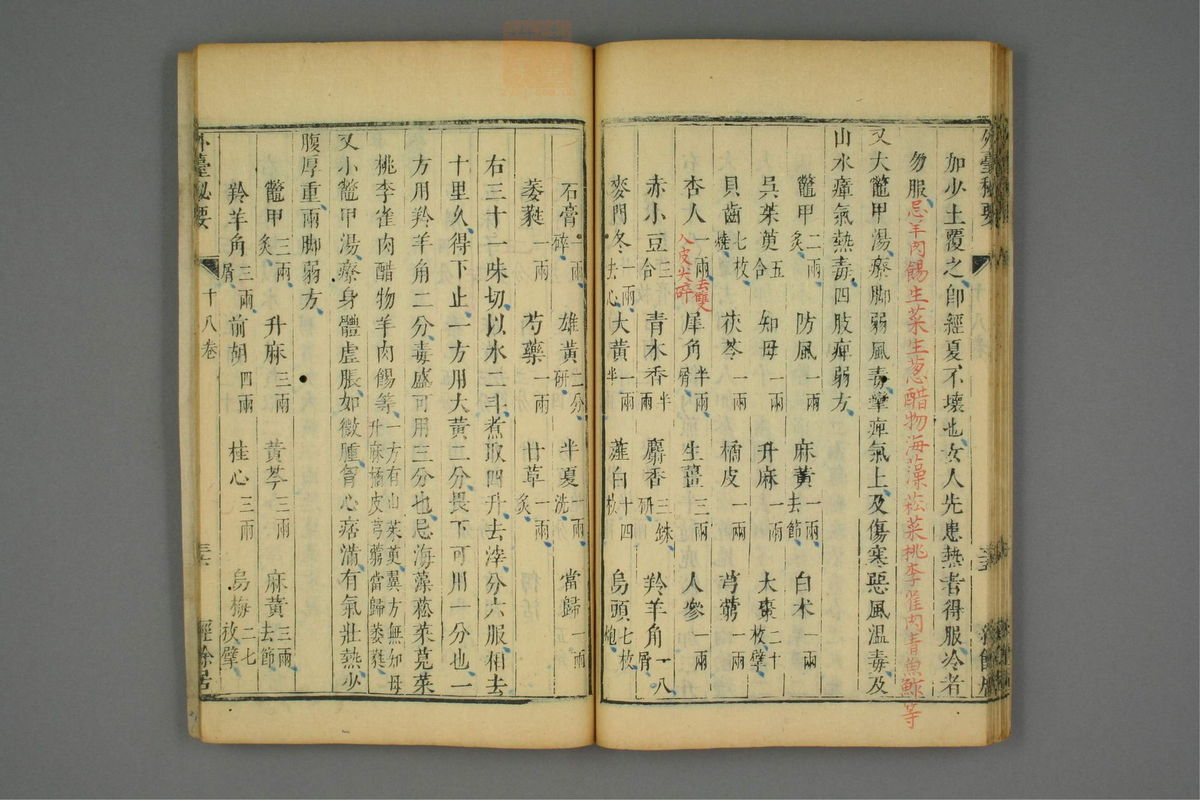 外臺秘要
加少土覆之卽經夏不壞也女人先患熱者得服冷者
勿服忌羊肉餳生菜生葱醋物海藻菘菜桃李雀肉青魚鮓等
又大鼈甲湯療脚弱風毒攣痺氣上及傷寒惡風溫毒及
山水瘴氣熱毒四肢痺弱方
鼈甲二兩炙 防風一兩 麻黃一兩去節 白朮一兩
吳茱萸五合 知母一兩 升麻一兩 大棗二十枚擘
貝齒七枚燒 茯苓一兩 橘皮一兩 芎藭一兩
杏人一兩去雙人皮尖碎 犀角半兩屑 生薑三兩 人參一兩
赤小豆三合 青木香半兩 麝香三銖研 羚羊角一八屑
麥門冬一兩去心 大黃一兩半 薤白十四枚 烏頭七枚炮
石膏一兩碎 雄黃二分研 半夏一兩洗 當歸一兩
萎蕤一兩 芍藥一兩 甘草一兩炙
右三十一味切以水二斗煮取四升去滓分六服相去
十里久得下止一方用大黃二分畏下可用一分也一
方用羚羊角二分毒盛可用三分也忌海藻菘菜莧菜
桃李雀肉醋物羊肉餳等一方有山茱萸翼方無知母升麻橘皮芎藭當歸萎蕤
又小鼈甲湯療身體虛脹如微腫胷心痞滿有氣壯熱少
腹厚重兩脚弱方
鼈甲三兩炙 升麻三兩 黃芩三兩 麻黃三兩去節
羚羊角三兩屑 前胡四兩 桂心三兩 烏梅二七枚擘
外臺秘要 十八卷 經餘居